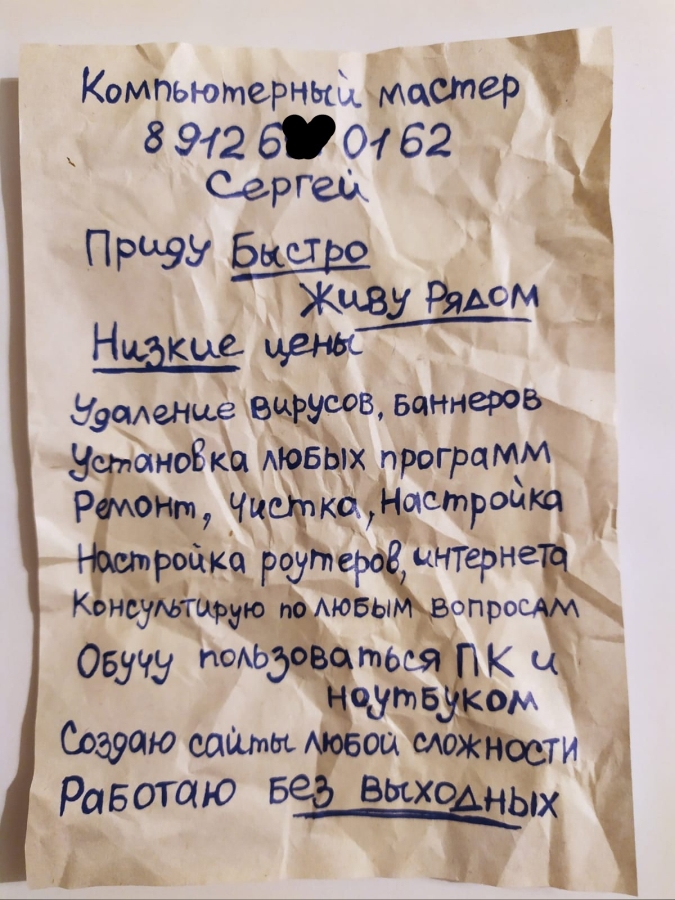 Компьютерный мастер
8 912 6 01 62
Сергей
Приду Быстро
Живу Рядом
Низкие цены
Удаление вирусов, баннеров
Установка любых программ
Ремонт, Чистка, Настройка
Настройка роутеров, интернета
Консультирую по любым вопросам
Обучу пользоваться ПК и
ноутбуком
Создаю сайты любой сложности
Работаю без выходных